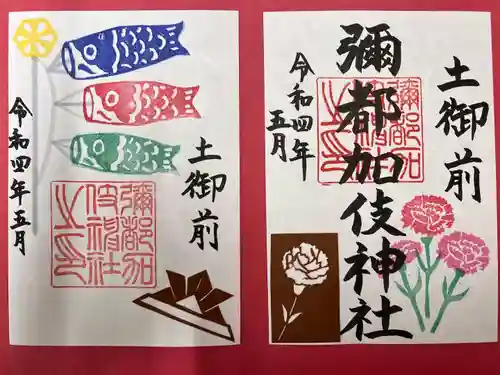 土御前
令和四年五月
彌都加
伎神社
之印
土御前
彌都加伎神社
令和四年
五月